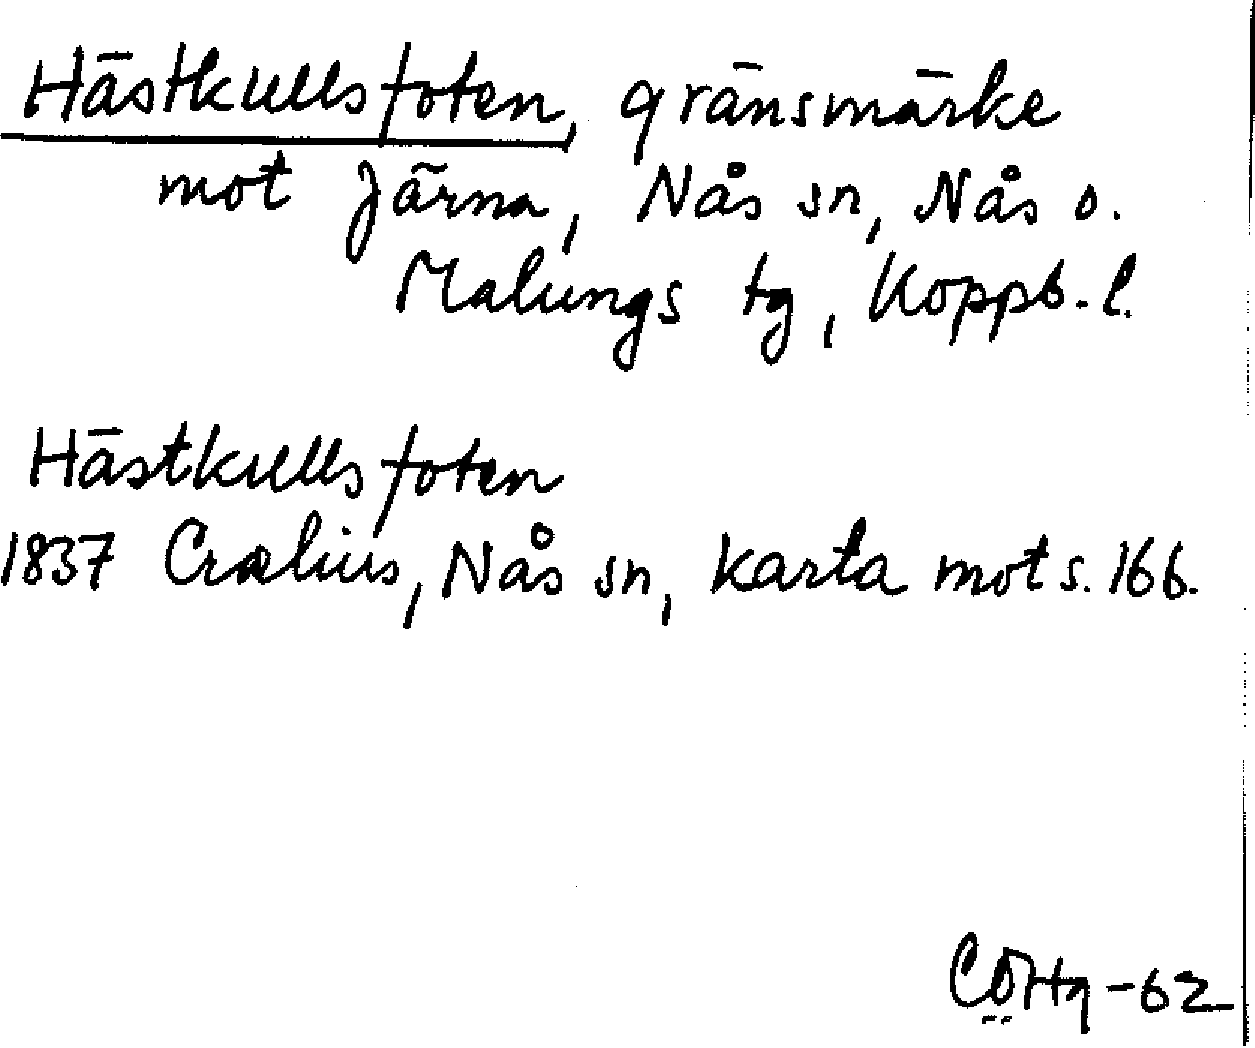 Hästkullsfoten, gränsmärke
mot Järna, Nås sn, Nås o.
Malungs tg, Koppb.l.
Hästkullsfoten
1837 Crælius, Nås sn, karta mot s. 166.
-62